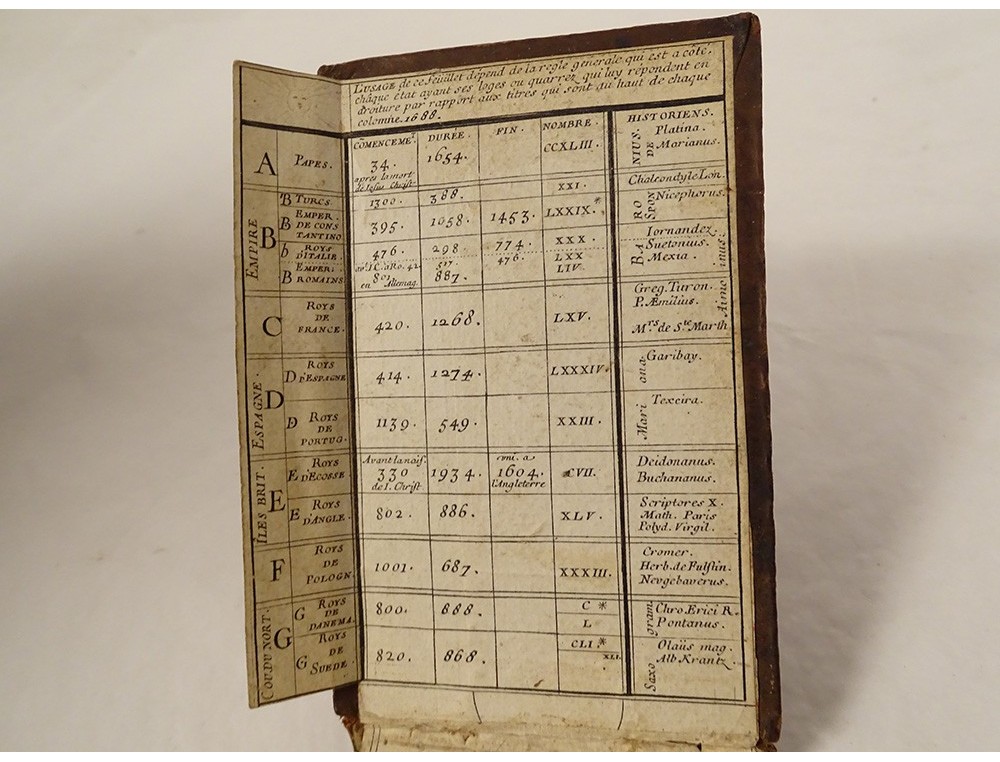 L'USAGE de ce feuillet dépend de la regle generale qui est a côté,
châque état ayant ses loges ou quarrez qui luy répondent en
droiture par rapport aux titres qui sont au haut de chaque
colomne. 1688.
COMMENCEMET. DUREE. FIN. NOMBRE. HISTORIENS.
A PAPES. 34. 1654. CCXLIII. Platina.
après la mort de Jesus Christ. NIUS. DE Marianus.
EMPIRE B
B TURCS. 1300. 388. XXI. Chalcondyle Lon.
B EMPER. DE CONSTANTINO 395. 1058. 1453. LXXIX.* RO SPON Nicephorus.
b ROYS D'ITALIE. 476. 298. 774. XXX. Iornandez.
B EMPER: ROMAINS. av. J.C. a Ro. 42. 517. 476. LXX BA Suetonius.
801 en Allemag. 887. LIV. Mexia.
C ROYS DE FRANCE. 420. 1268. LXV. Greg. Turon.
P. Æmilius. Aimo inus.
Mrs. de Ste Marth
ESPAGNE. D
D ROYS D'ESPAGNE 414. 1274. LXXXIV. Garibay.
D ROYS DE PORTUG. 1139. 549. XXIII. Mari ana Texeira.
ÎLES BRIT. E
E ROYS D'ECOSSE. Avant la nais. 330 de I. Christ. 1934. 1604. l'Angleterre CVII. Deidonanus.
Buchananus.
E ROYS D'ANGLE. 802. 886. XLV. Scriptores X.
Math. Paris
Polyd. Virgil.
F ROYS DE POLOGN. 1001. 687. XXXIII. Cromer.
Herb. de Fulstin.
Neugebaverus.
COU. DU NORT. G
G ROYS DE DANEMA. 800. 888. C * Chro. Erici R.
L Pontanus.
G ROYS DE SUEDE. 820. 868. CLI.* Saxo gram. Olaüs mag.
XLI. Alb Krantz.